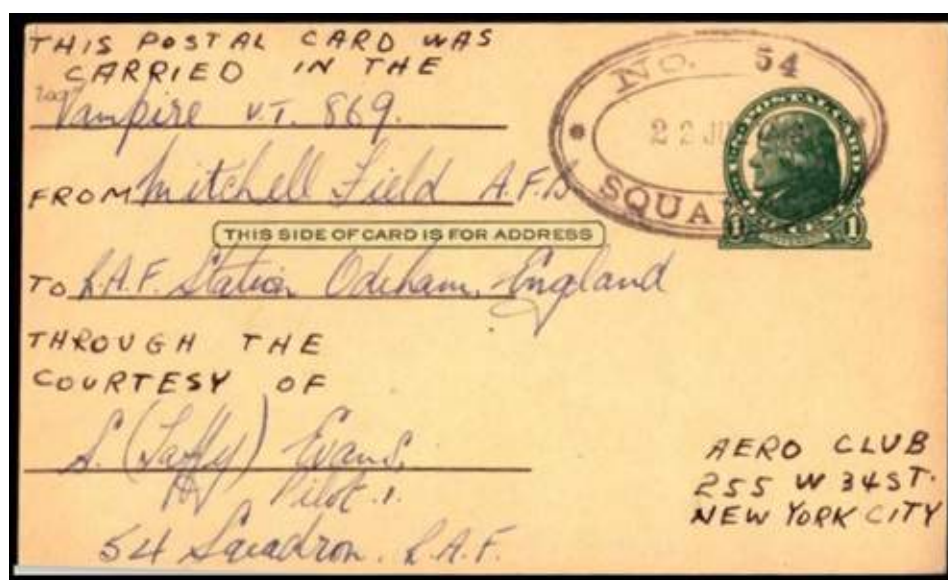 THIS POSTAL CARD WAS
CARRIED IN THE
Vampire V.T. 869.
FROM Mitchell Field A.F.B
THIS SIDE OF CARD IS FOR ADDRESS
TO R.A.F. Station Odiham, England
THROUGH THE
COURTESY OF
S. (Taffy) Evans.
Pilot 1.
54 Squadron. R.A.F.
NO. 54
22 JU
SQUA
U.S. POSTAL CARD
1 1
AERO CLUB
255 W 34 ST.
NEW YORK CITY